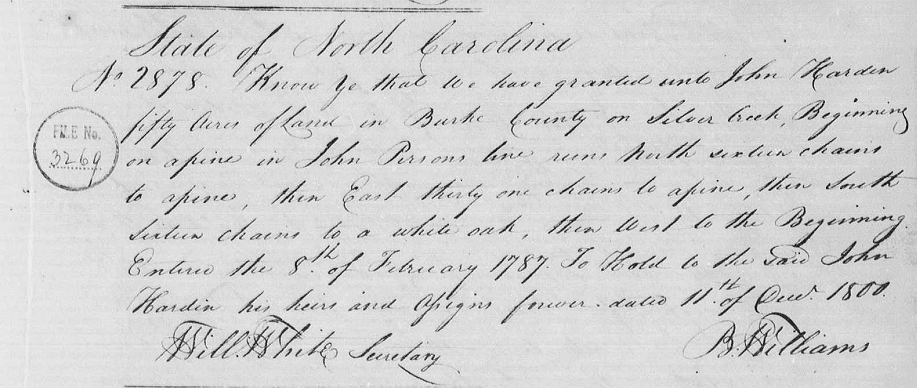 State of North Carolina
No. 2878. Know Ye that We have granted unto John Hardin
fifty Acres of Land in Burke County on Silver Creek, Beginning
FILE No.
3269
on a pine in John Persons line runs North sixteen chains
to a pine, then East thirty one chains to a pine, then South
sixteen chains to a white oak, then West to the Beginning.
Entered the 8th. of February 1787. To Hold to the said John
Hardin his heirs and Assigns forever. dated 11th. of Decr. 1800.
Will. White Secretary
B. Williams